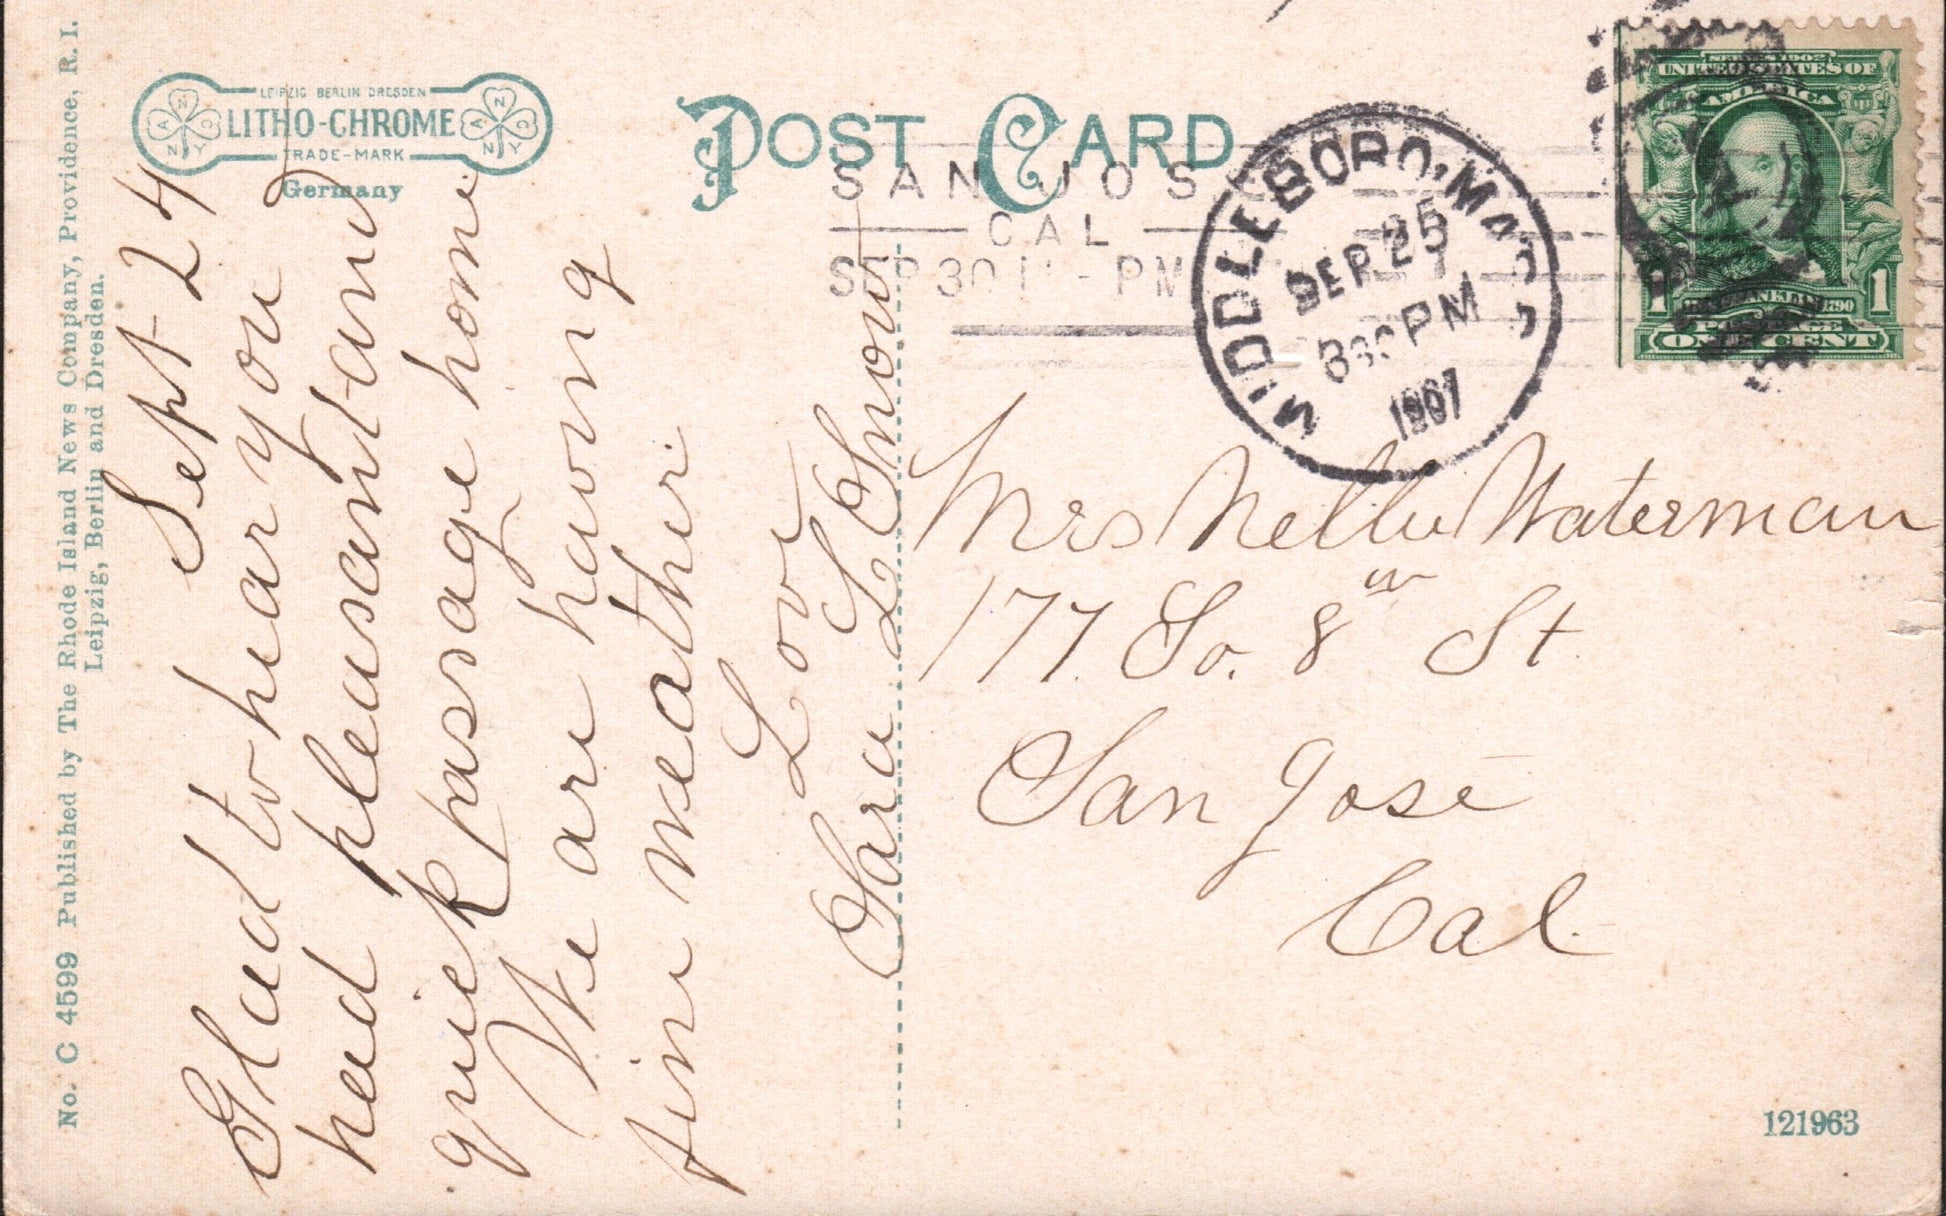 No. C 4599 Published by The Rhode Island News Company, Providence, R. I.
Leipzig, Berlin and Dresden.
LEIPZIG BERLIN DRESDEN
LITHO-CHROME
TRADE-MARK
Germany
POST CARD
SAN JOS
CAL
SEP 30 PM
MIDDLEBORO, MASS
SEP 25
330 PM
1907
SERIES 1902
UNITED STATES OF
AMERICA
FRANKLIN 1790
POSTAGE
1 1
ONE CENT
Sept 24
Glad to hear you
had pleasant and
quick passage home
We are having
fine weather.
Love
Sara L Snow
Mrs Nellie Waterman
177 So. 8th St
San José
Cal.
121963